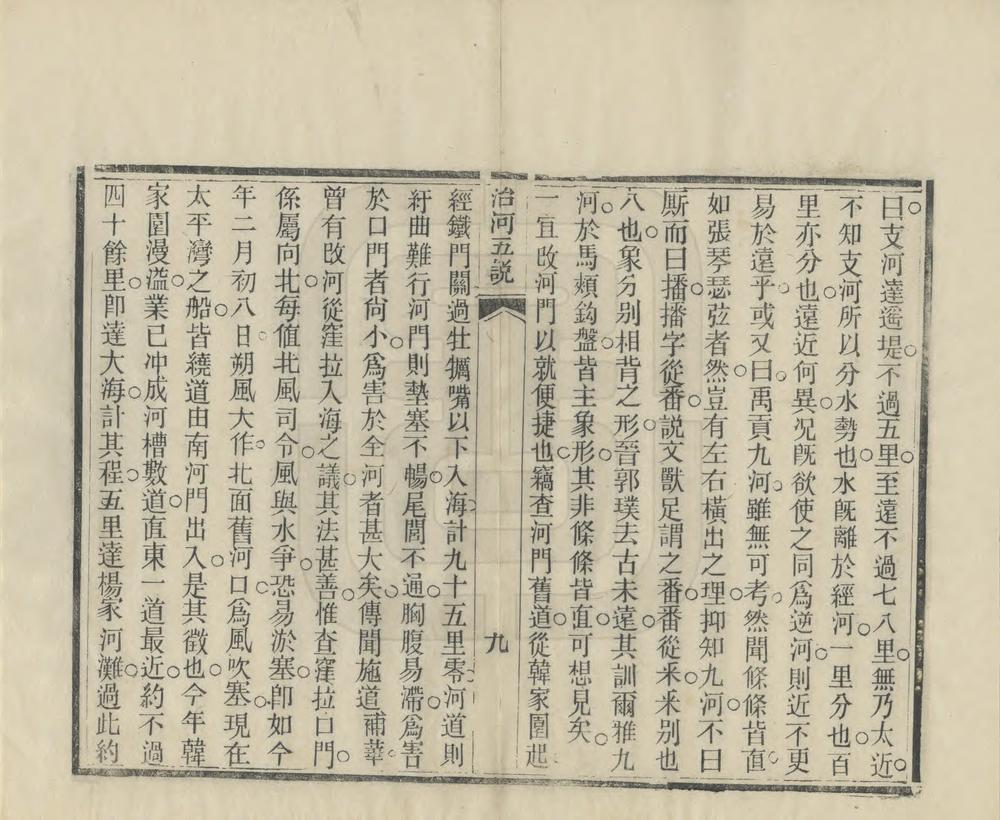 曰支河達遥堤不過五里至遠不過七八里無乃太近
不知支河所以分水勢也水旣離於經河一里分也百
里亦分也遠近何異况旣欲使之同爲逆河則近不更
易於遠乎或又曰禹貢九河雖無可考然聞條條皆直
如張琴瑟弦者然豈有左右橫出之理抑知九河不曰
厮而曰播播字從番說文獸足謂之番番從釆釆别也
八也象分别相背之形晉郭璞去古未遠其訓爾雅九
河於馬頰鈎盤皆主象形其非條條皆直可想見矣
一宜改河門以就便捷也竊查河門舊道從韓家圍起
治河五說
九
經鐵門關過牡蠣嘴以下入海計九十五里零河道則
紆曲難行河門則墊塞不暢尾閭不通胸腹易滯爲害
於口門者尙小爲害於全河者甚大矣傳聞施道補華
曾有改河從窪拉入海之議其法甚善惟查窪拉口門
係屬向北每值北風司令風與水爭恐易淤塞卽如今
年二月初八日朔風大作北面舊河口爲風吹塞現在
太平灣之船皆繞道由南河門出入是其徵也今年韓
家圍漫溢業已冲成河槽數道直東一道最近約不過
四十餘里卽達大海計其程五里達楊家河灘過此約